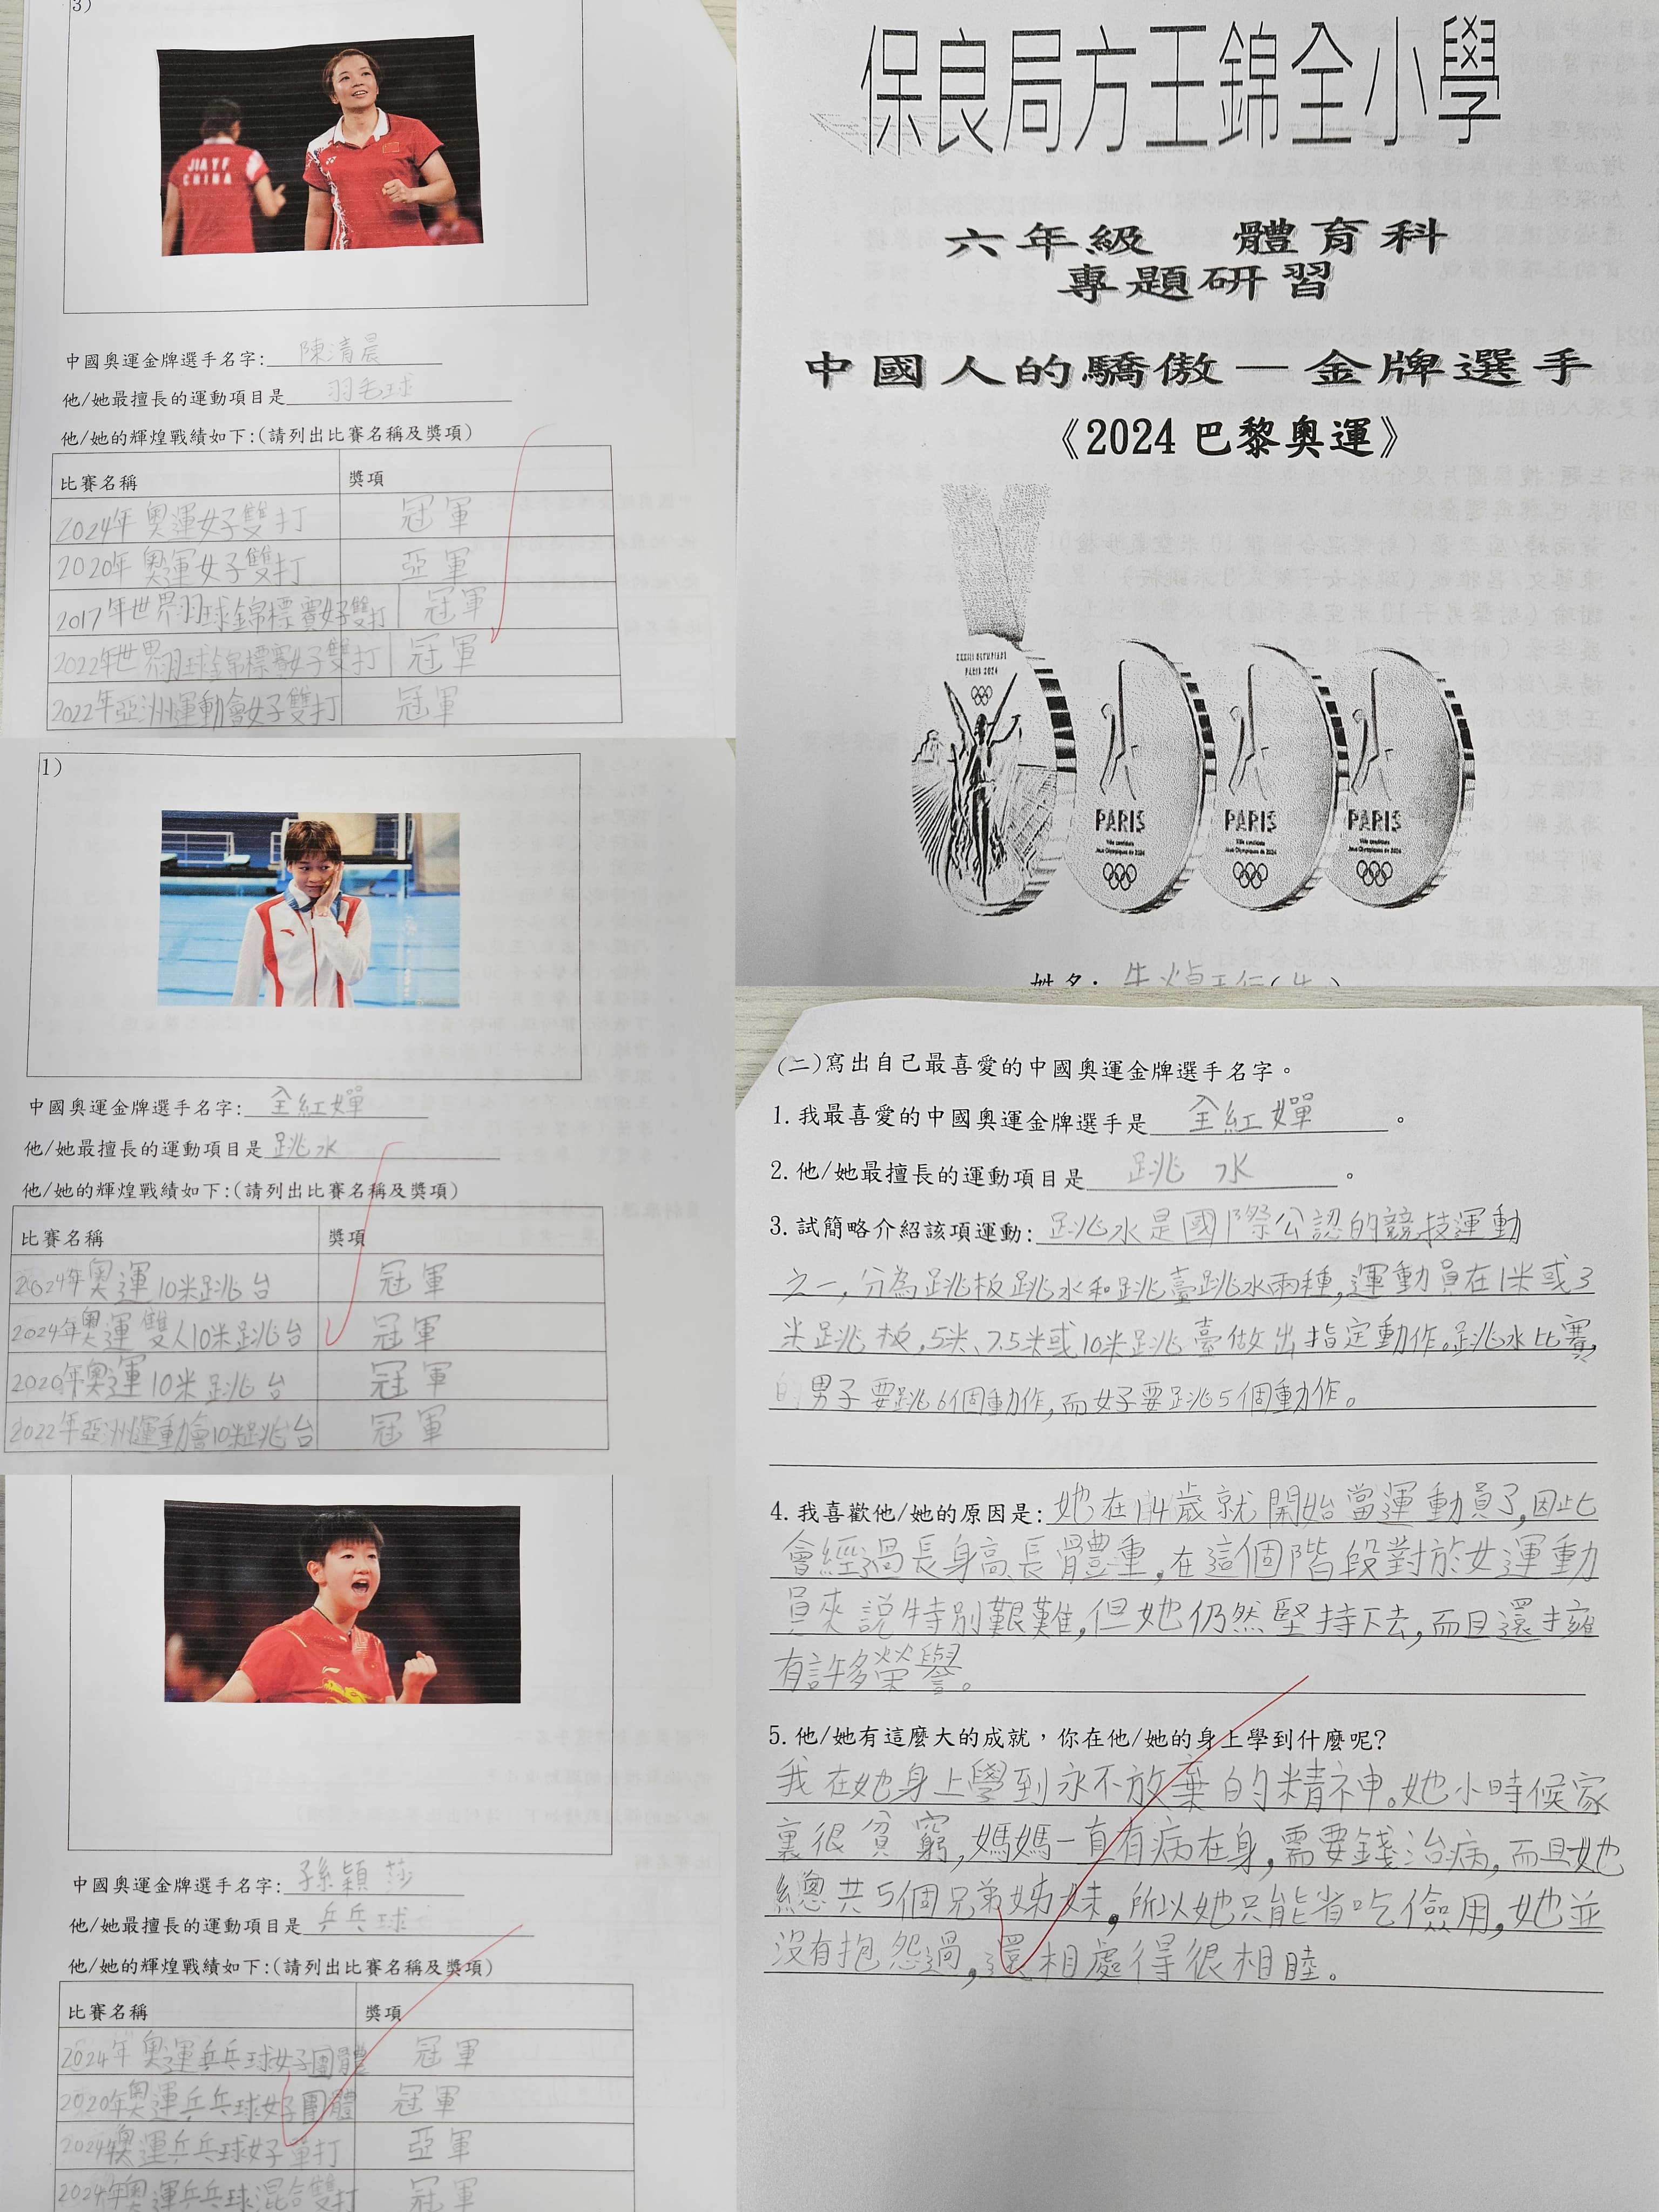 3)
JIA Y F
CHINA
中國奧運金牌選手名字:陳清晨
他/她最擅長的運動項目是羽毛球
他/她的輝煌戰績如下:(請列出比賽名稱及獎項)
比賽名稱 獎項
2024年奧運女子雙打 冠軍
2020年奧運女子雙打 亞軍
2017年世界羽球錦標賽女子雙打 冠軍
2022年世界羽球錦標賽女子雙打 冠軍
2022年亞洲運動會女子雙打 冠軍
1)
中國奧運金牌選手名字:全紅嬋
他/她最擅長的運動項目是跳水
他/她的輝煌戰績如下:(請列出比賽名稱及獎項)
比賽名稱 獎項
2024年奧運10米跳台 冠軍
2024年奧運雙人10米跳台 冠軍
2020年奧運10米跳台 冠軍
2022年亞洲運動會10米跳台 冠軍
中國奧運金牌選手名字:孫穎莎
他/她最擅長的運動項目是乒乓球
他/她的輝煌戰績如下:(請列出比賽名稱及獎項)
比賽名稱 獎項
2024年奧運乒乓球女子團體 冠軍
2020年奧運乒乓球女子團體 冠軍
2024年奧運乒乓球女子單打 亞軍
2024年奧運乒乓球混合雙打 冠軍
保良局方王錦全小學
六年級 體育科
專題研習
中國人的驕傲—金牌選手
《2024巴黎奧運》
XXXIII OLYMPIADE
PARIS 2024
PARIS PARIS PARIS
Ville candidate Ville candidate Ville candidate
Jeux Olympiques de 2024 Jeux Olympiques de 2024 Jeux Olympiques de 2024
姓名:
(二)寫出自己最喜愛的中國奧運金牌選手名字。
1.我最喜愛的中國奧運金牌選手是全紅嬋。
2.他/她最擅長的運動項目是跳水。
3.試簡略介紹該項運動:跳水是國際公認的競技運動
之一,分為跳板跳水和跳臺跳水兩種,運動員在1米或3
米跳板,5米、7.5米或10米跳臺做出指定動作。跳水比賽,
的男子要跳6個動作,而女子要跳5個動作。
4.我喜歡他/她的原因是:她在14歲就開始當運動員了,因此
會經過長身高長體重,在這個階段對於女運動
員來說特別艱難,但她仍然堅持下去,而且還擁
有許多榮譽。
5.他/她有這麼大的成就,你在他/她的身上學到什麼呢?
我在她身上學到永不放棄的精神。她小時候家
裏很貧窮,媽媽一直有病在身,需要錢治病,而且她
總共5個兄弟姊妹,所以她只能省吃儉用,她並
沒有抱怨過,還相處得很相睦。